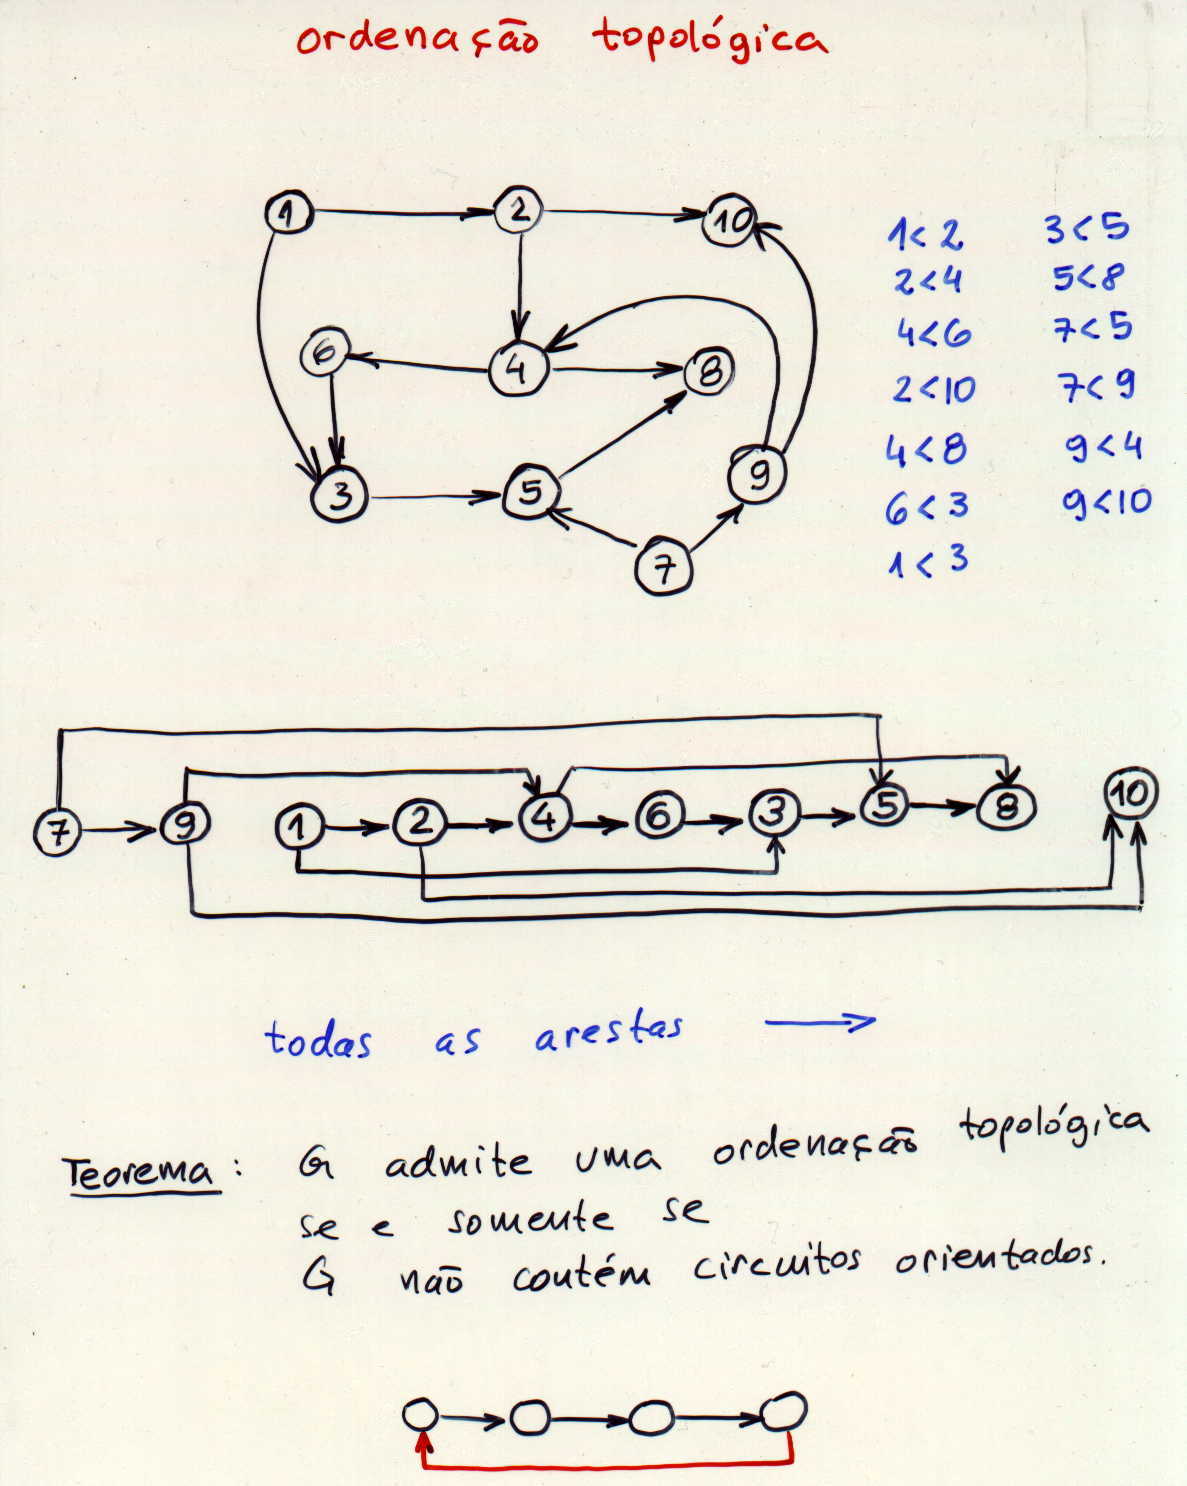 ordenação topológica
1 2 10
6 4 8
3 5 9
7
1<2 3<5
2<4 5<8
4<6 7<5
2<10 7<9
4<8 9<4
6<3 9<10
1<3
7 9 1 2 4 6 3 5 8 10
todas as arestas
Teorema: G admite uma ordenação topológica
se e somente se
G não contém circuitos orientados.